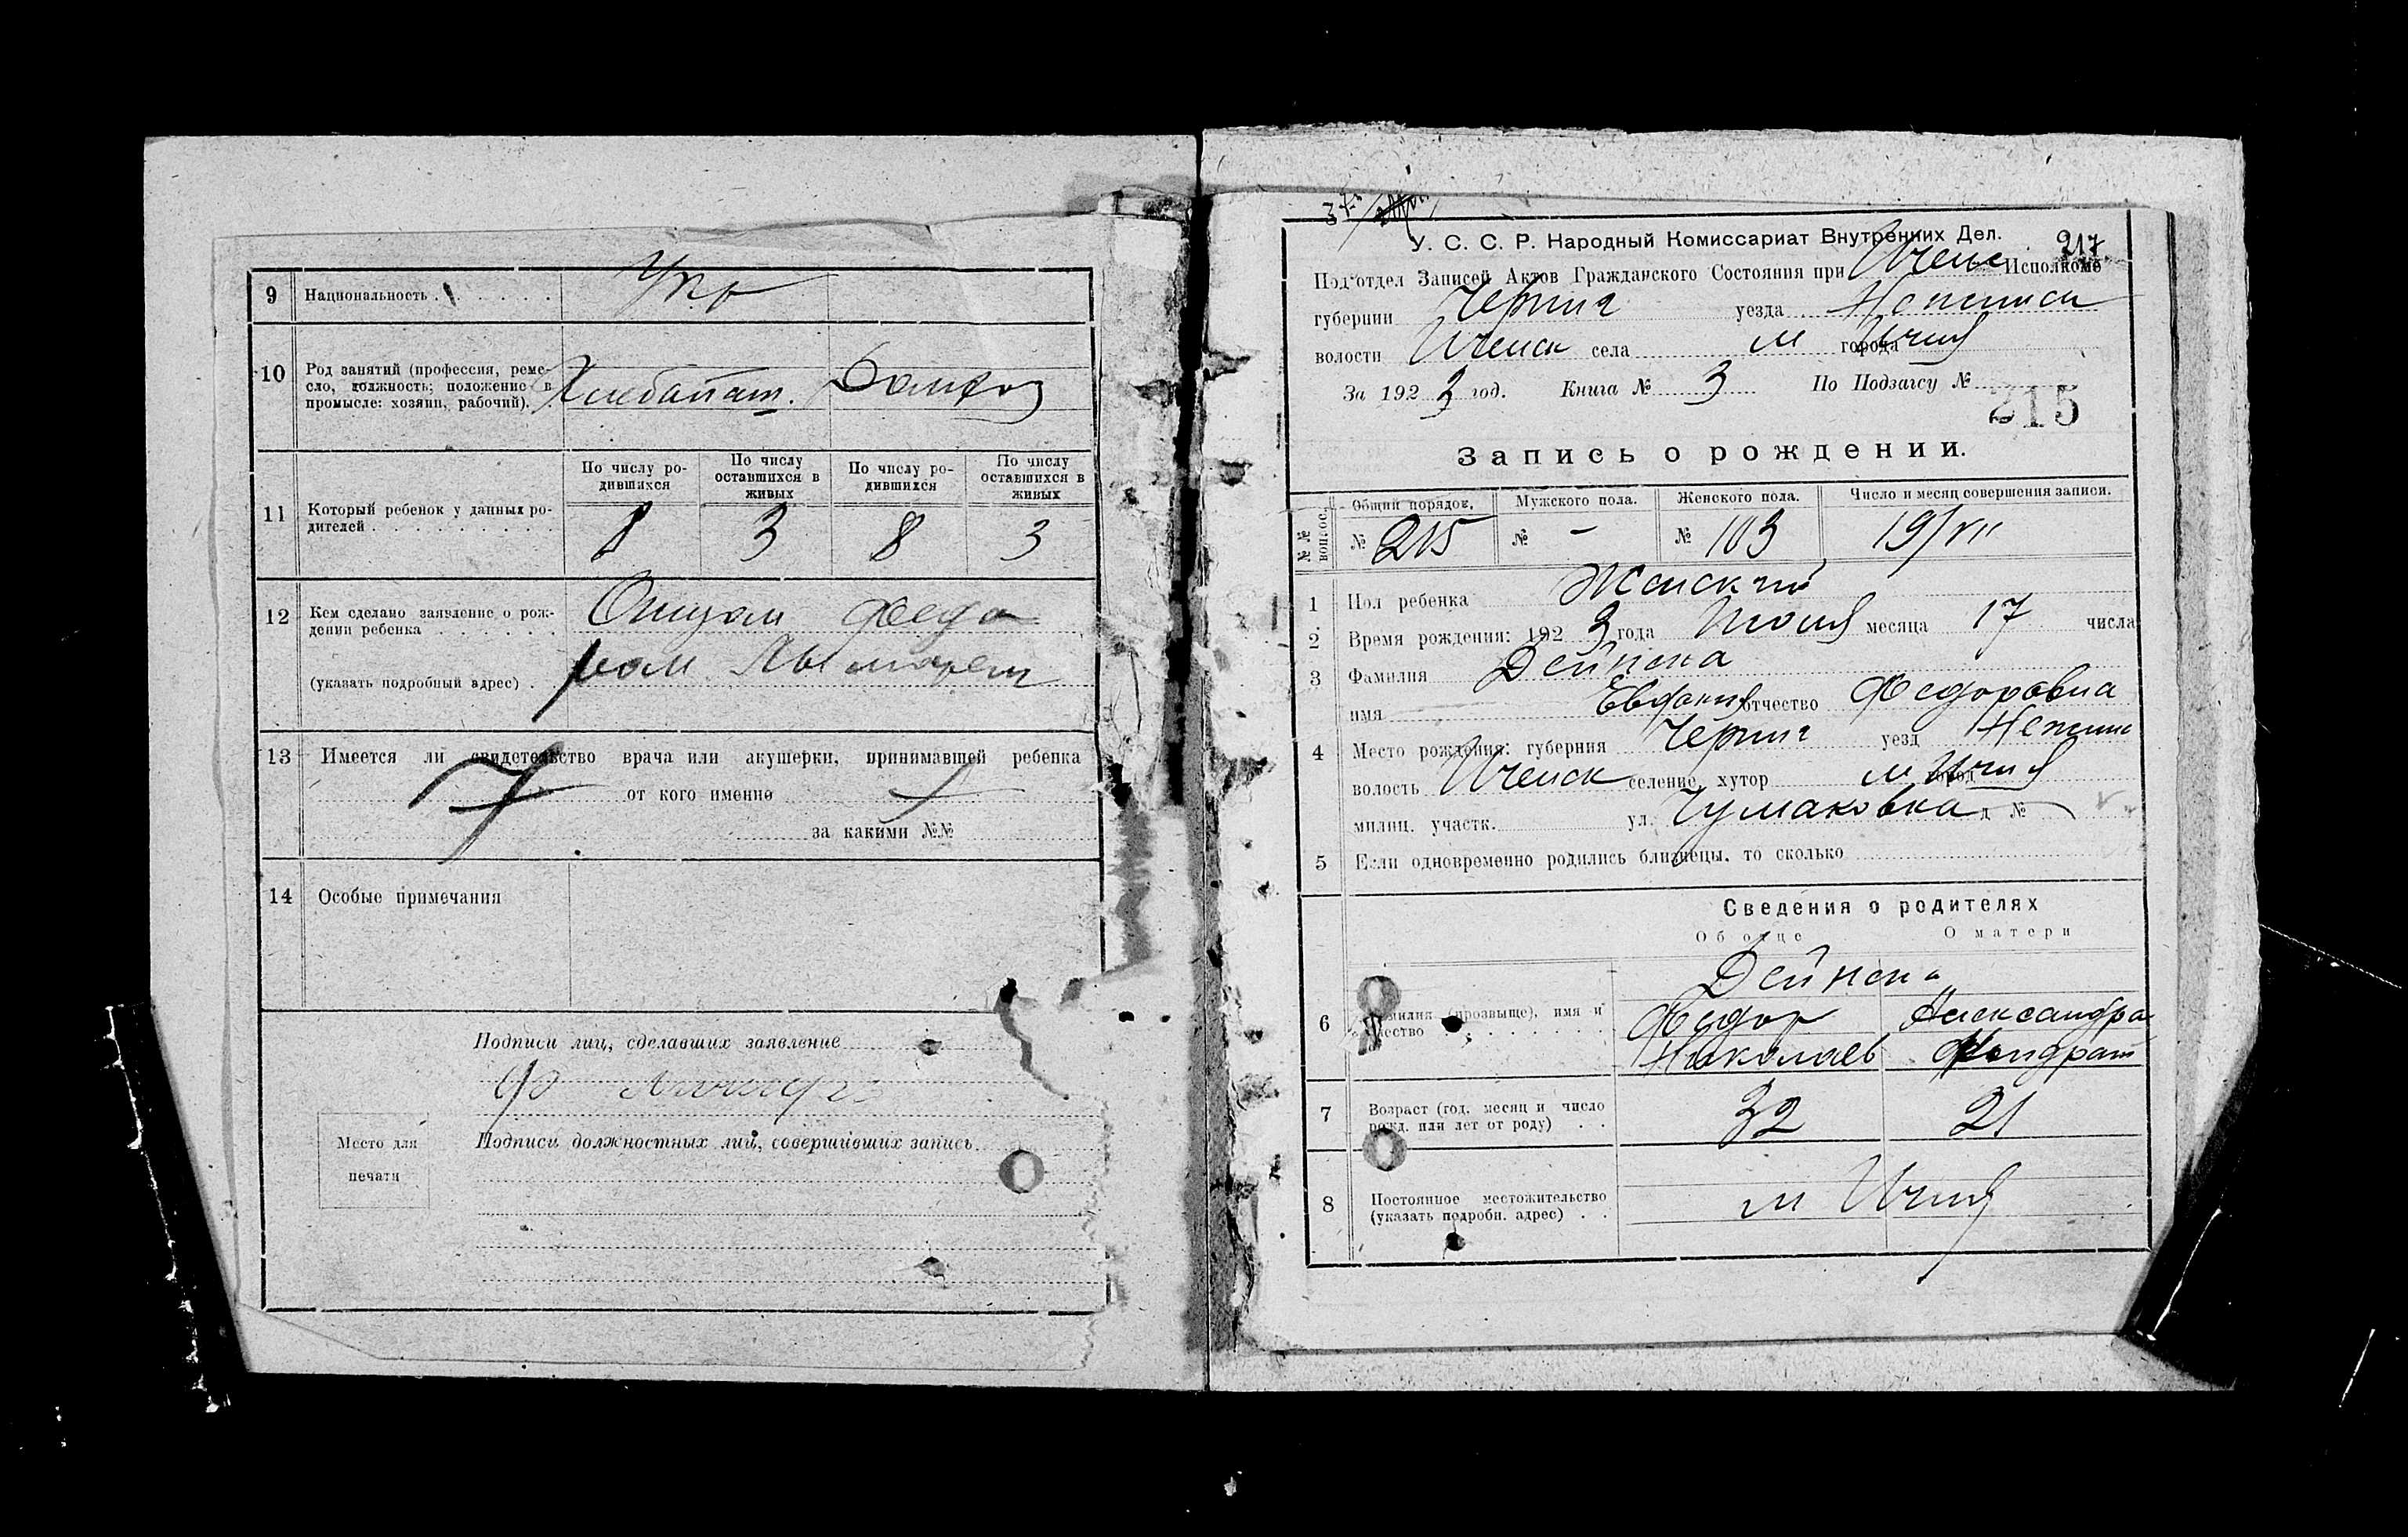 9 Национальность . . . . . . . Укр
10 Род занятий (профессия, реме-
сло, должность; положение в
промысле: хозяин, рабочий). .
Хлебопаш. Домхоз
По числу ро-
дившихся
По числу
оставшихся в
живых
По числу ро-
дившихся
По числу
оставшихся в
живых
11 Который ребенок у данных ро-
дителей . . . . . . . . . .
8 3 8 3
12 Кем сделано заявление о рож-
дении ребенка . . . . . .
(указать подробный адрес) .
Отцом Федо
ром
13 Имеется ли свидетельство врача или акушерки, принимавшей ребенка
от кого именно
за какими №№
14 Особые примечания
Подписи лиц, сделавших заявление
Место для
печати
Подписи должностных лиц, совершивших запись
217
У. С. С. Р. Народный Комиссариат Внутренних Дел.
Под‘отдел Записей Актов Гражданского Состояния при Ичен Исполкоме
губернии Черниг уезда Нежинск
волости Иченск села м города Ичня
За 1923 год. Книга № 3 По Подзагсу №
215
Запись о рождении.
№№ вопрос.
Общий порядок. Мужского пола. Женского пола. Число и месяц совершения записи.
№ 215 № – № 103 19/VII
1 Пол ребенка Женский
2 Время рождения: 1923 года Июля месяца 17 числа
3 Фамилия Дейнека
имя Евдокия отчество Федоровна
4 Место рождения: губерния Черниг уезд Нежин
волость Иченск селение, хутор м Ичня город
милиц. участк. ул. Чумаковка д №
5 Если одновременно родились близнецы, то сколько
Сведения о родителях
Об отце О матери
Дейнека
6 Фамилия (прозвище), имя и
отчество . . . . . . . .
Федор Александра
Николаев Кондрат
7 Возраст (год, месяц и число
рожд. или лет от роду) . .
32 21
8 Постоянное местожительство
(указать подробн. адрес) . .
м Ичня